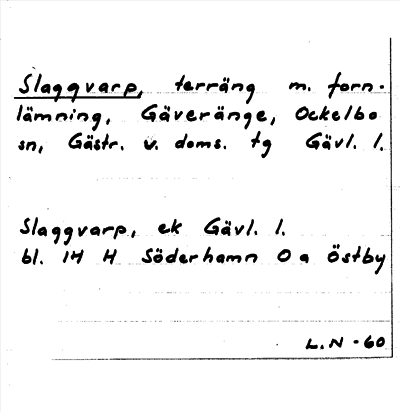 Slaggvarp, terräng m. forn-
lämning, Gäveränge, Ockelbo
sn, Gästr. v. doms. tg Gävl. l.
Slaggvarp, ek Gävl. l.
bl. 14 H Söderhamn 0 a Östby
L.N - 60